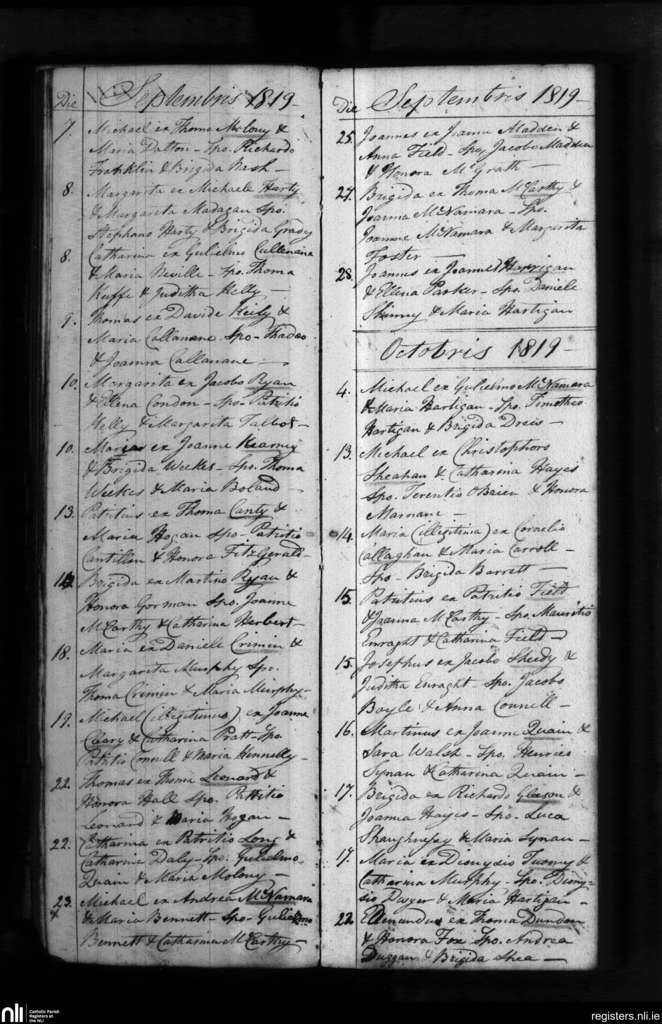 Die Septembris 1819
7. Michael ex Thoma Molony &
Maria Dalton - Spo. Richardo
Franklin & Brigida Nash -
8. Margarita ex Michaele Harty
& Margarita Madagan Spo.
Stephano Harty & Brigida Grady
8. Catharina ex Gulielmo Cullenane
& Maria Neville - Spo. Thoma
Keeffe & Juditha Kelly -
9. Thomas ex Davide Keily &
Maria Callanane Spo - Thadeo
& Joanna Callanane -
10. Margarita ex Jacobo Ryan
& Ellena Condon - Spo. Patritio
Kelly & Margarita Talbot -
10. Maria ex Joanne Kearney
& Brigida Weekes - Spo. Thoma
Weekes & Maria Boland -
13. Patritius ex Thoma Canty &
Maria Hogan Spo. Patritio
Cantillon & Honora FitzGerald -
14. Brigida ex Martino Ryan &
Honora Gorman Spo. Joanne
McCarthy & Catharina Herbert -
18. Maria ex Daniele Crimin &
Margarita Murphy Spo.
Thoma Crimin & Maria Murphy -
19. Michael (illegitimus) ex Joanne
Cleary & Catharina Pratt - Spo
Patritio Connell & Maria Hennelly -
22. Thomas ex Thoma Leonard &
Honora Hall Spo. Patritio
Leonard & Maria Hogan -
22. Catharina ex Patritio Long &
Catharina Daly - Spo. Gulielmo
Quain & Maria Molony -
23. Michael ex Andrea McNamara
& Maria Bennett - Spo - Gulielmo
Bennett & Catharina McCarthy -
Die Septembris 1819 -
25. Joannes ex Joanne Madden &
Anna Field - Spo. Jacobo Madden
& Honora McGrath -
27. Brigida ex Thoma McCarthy &
Joanna McNamara - Spo.
Joanne McNamara & Margarita
Foster -
28. Joannes ex Joanne Horrigan
& Ellena Parker - Spo. Daniele
& Maria Hartigan
Octobris 1819 -
4. Michael ex Gulielmo McNamara
& Maria Hartigan - Spo. Timotheo
Hartigan & Brigida
13. Michael ex Christophoro
Sheahan & Catharina Hayes
Spo. Terentio OBrien & Honora
Marnane -
14. Maria (illegitima) ex Cornelio
Callaghan & Maria Carroll -
Spo - Brigida Barrett -
15. Patritius ex Patritio Field
& Joanna McCarthy - Spo. Mauritio
Enraght & Catharina Field -
15. Josephus ex Jacobo Sheedy &
Juditha Enraght - Spo. Jacobo
Boyle & Anna Connell -
16. Martinus ex Joanne Quain &
Sara Walsh - Spo. Henrico
Synan & Catharina Quain -
17. Brigida ex Richardo Gleeson &
Joanna Hayes - Spo. Luca
Shaughnessy & Maria Synan -
17. Maria ex Dionysio Twomy &
Catharina Murphy - Spo. Diony-
sio Dwyer & Maria Hartigan -
22. Edmundus ex Thoma Dundon
& Honora Fox Spo. Andrea
Duggan & Brigida Shea -
nli
Catholic Parish
Registers at
the NLI
registers.nli.ie